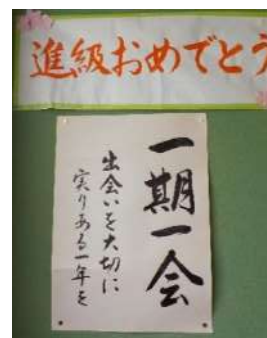 進級おめでとう
一期一会
出会いを大切に
実りある一年を